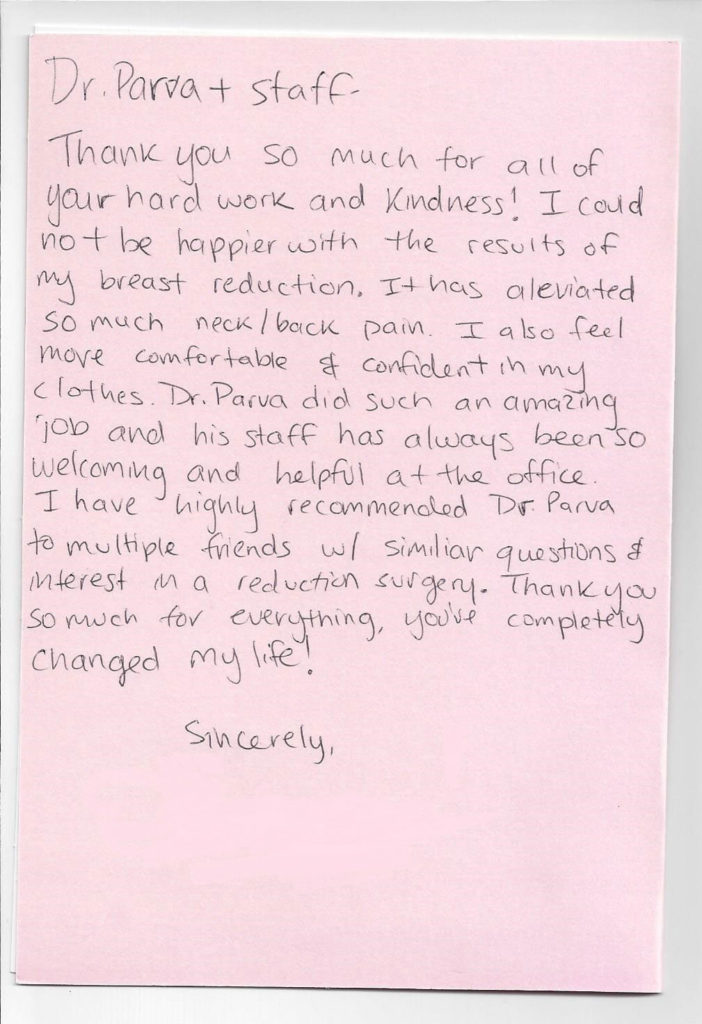 Dr. Parva + staff-
Thank you so much for all of
your hard work and kindness! I could
not be happier with the results of
my breast reduction. It has aleviated
so much neck/back pain. I also feel
more comfortable & confident in my
clothes. Dr. Parva did such an amazing
job and his staff has always been so
welcoming and helpful at the office.
I have highly recommended Dr. Parva
to multiple friends w/ similiar questions &
interest in a reduction surgery. Thank you
so much for everything, you've completely
changed my life!
Sincerely,